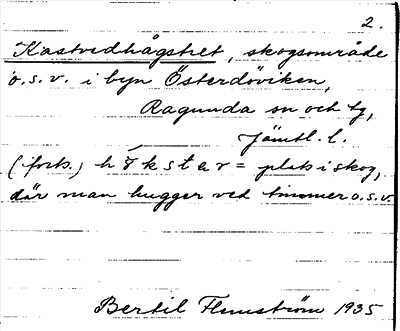 2.
Kastvedhågstret, skogsområde
o.s.v. i byn Österdöviken,
Ragunda sn och tg,
Jämtl. l.
(forts.) h k s t a r = plats i skog,
där man hugger ved timmer o.s.v.
Bertil Flemström 1935